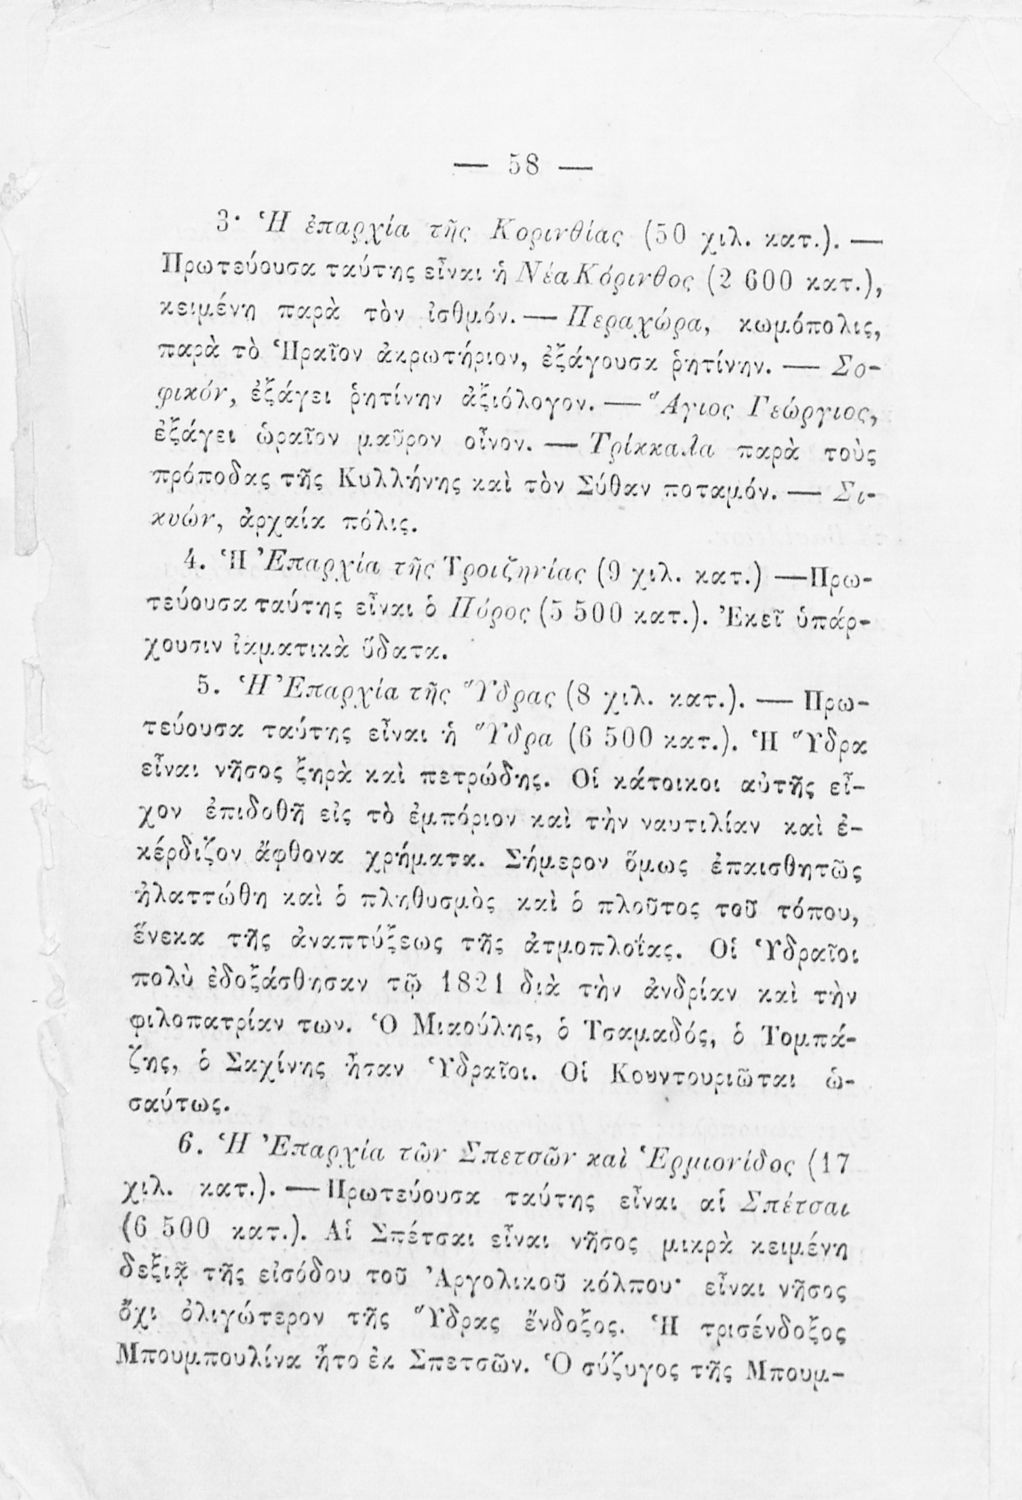 — 58 —
3· Ἡ ἐπαρχία τῆς Κορινθίας (50 χιλ. κατ.). —
Πρωτεύουσα ταύτης εἶναι ἡ Νέα Κόρινθος (2 600 κατ.),
κειμένη παρὰ τὸν ἰσθμόν. — Περαχώρα, κωμόπολις,
παρὰ τὸ Ἡραῖον ἀκρωτήριον, ἐξάγουσα ῥητίνην. — Σο-
φικόν, ἐξάγει ῥητίνην ἀξιόλογον. — Ἅγιος Γεώργιος,
ἐξάγει ὡραῖον μαῦρον οἶνον. — Τρίκκαλα παρὰ τοὺς
πρόποδας τῆς Κυλλήνης καὶ τὸν Σύθαν ποταμόν. — Σι-
κυών, ἀρχαία πόλις.
4. Ἡ Ἐπαρχία τῆς Τροιζηνίας (9 χιλ. κατ.) —Πρω-
τεύουσα ταύτης εἶναι ὁ Πόρος (5 500 κατ.). Ἐκεῖ ὑπάρ-
χουσιν ἰαματικὰ ὕδατα.
5. Ἡ Ἐπαρχία τῆς Ὕδρας (8 χιλ. κατ.). — Πρω-
τεύουσα ταύτης εἶναι ἡ Ὕδρα (6 500 κατ.). Ἡ Ὕδρα
εἶναι νῆσος ξηρὰ καὶ πετρώδης. Οἱ κάτοικοι αὐτῆς εἶ-
χον ἐπιδοθῆ εἰς τὸ ἐμπόριον καὶ τὴν ναυτιλίαν καὶ ἐ-
κέρδιζον ἄφθονα χρήματα. Σήμερον ὅμως ἐπαισθητῶς
ἠλαττώθη καὶ ὁ πληθυσμὸς καὶ ὁ πλοῦτος τοῦ τόπου,
ἕνεκα τῆς ἀναπτύξεως τῆς ἀτμοπλοΐας. Οἱ Ὑδραῖοι
πολὺ ἐδοξάσθησαν τῷ 1821 διὰ τὴν ἀνδρίαν καὶ τὴν
φιλοπατρίαν των. Ὁ Μιαούλης, ὁ Τσαμαδός, ὁ Τομπά-
ζης, ὁ Σαχίνης ἦσαν Ὑδραῖοι. Οἱ Κουντουριῶται ὡ-
σαύτως.
6. Ἡ Ἐπαρχία τῶν Σπετσῶν καὶ Ἑρμιονίδος (17
χιλ. κατ.). — Πρωτεύουσα ταύτης εἶναι αἱ Σπέτσαι
(6 500 κατ.). Αἱ Σπέτσαι εἶναι νῆσος μικρὰ κειμένη
δεξιᾷ τῆς εἰσόδου τοῦ Ἀργολικοῦ κόλπου· εἶναι νῆσος
ὄχι ὀλιγώτερον τῆς Ὕδρας ἔνδοξος. Ἡ τρισένδοξος
Μπουμπουλίνα ἦτο ἐκ Σπετσῶν. Ὁ σύζυγος τῆς Μπουμ-